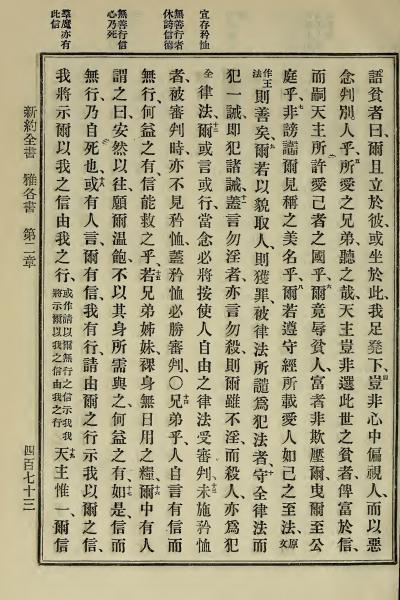 宜存矜恤
無善行者
休誇信德
無善行信
心乃死
羣魔亦有
此信
語貧者曰、爾且立於彼、或坐於此我足凳下、四豈非心中偏視人、而以惡
念判別人乎、五所愛之兄弟聽之哉、天主豈非選此世之貧者、俾富於信、
而嗣天主所許愛己者之國乎、六爾竟辱貧人、富者非欺壓爾曳爾至公
庭乎、七非謗讟爾見稱之美名乎、八爾若遵守經所載愛人如己之至法、原文
作王法則善矣、九爾若以貌取人、則獲罪、被律法所譴爲犯法者、十守全律法而
犯一誡、即犯諸誡、十一蓋言勿淫者亦言勿殺、則爾雖不淫而殺人、亦爲犯
全律法、十二爾或言或行、當念必將按使人自由之律法受審判、十三未施矜恤
者、被審判時、亦不見矜恤、蓋矜恤必勝審判、〇十四兄弟乎、人自言有信而
無行、何益之有、信能救之乎、十五若兄弟姊妹、裸身無日用之糧、十六爾中有人
謂之曰、安然以往、願爾温飽、不以其身所需與之、何益之有、十七如是信而
無行、乃自死也、十八或有人言、爾有信、我有行、請由爾之行示我以爾之信、
我將示爾以我之信由我之行、或作請以爾無行之信示我我將示爾以我之信由我之行十九天主惟一、爾信
新約全書　雅各書　第二章　四百七十三